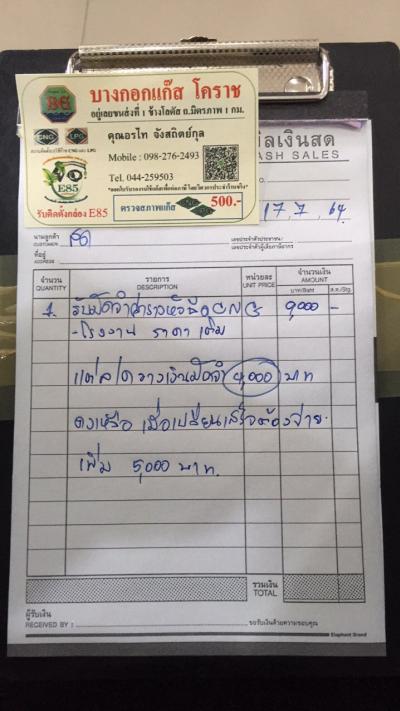 บางกอกแก๊ส โคราช
อยู่เลยขนส่งที่ 1 ข้างโลตัส ถ.มิตรภาพ 1 กม.
BG
CNG LPG
คุณอรไท จังสถิตย์กุล
Mobile : 098-276-2493
Tel. 044-259503
E85
รับติดตั้งกล่อง E85
ตรวจสภาพแก๊ส 500.-
บิลเงินสด
CASH SALES
NO.
17, 7, 64
นามลูกค้า
CUSTOMER
เลขประจำตัวประชาชน /
ที่อยู่
ADDRESS
เลขประจำตัวผู้เสียภาษีอากร
จำนวน
QUANTITY
รายการ
DESCRIPTION
หน่วยละ
UNIT PRICE
จำนวนเงิน
AMOUNT
บาท/Baht ส.ต./Stg.
1. รับมัดจำค่ารางหัวฉีด CNG 9,000 -
- โรงงาน ราคาเต็ม
แต่ลูกค้าวางเงินมัดจำ 4,000 บาท
คงเหลือ เมื่อเปลี่ยนเสร็จต้องจ่าย
เพิ่ม 5,000 บาท.
รวมเงิน
TOTAL
ผู้รับเงิน
RECEIVED BY :
ขอรับเงินด้วยความขอบคุณ
Elephant Brand